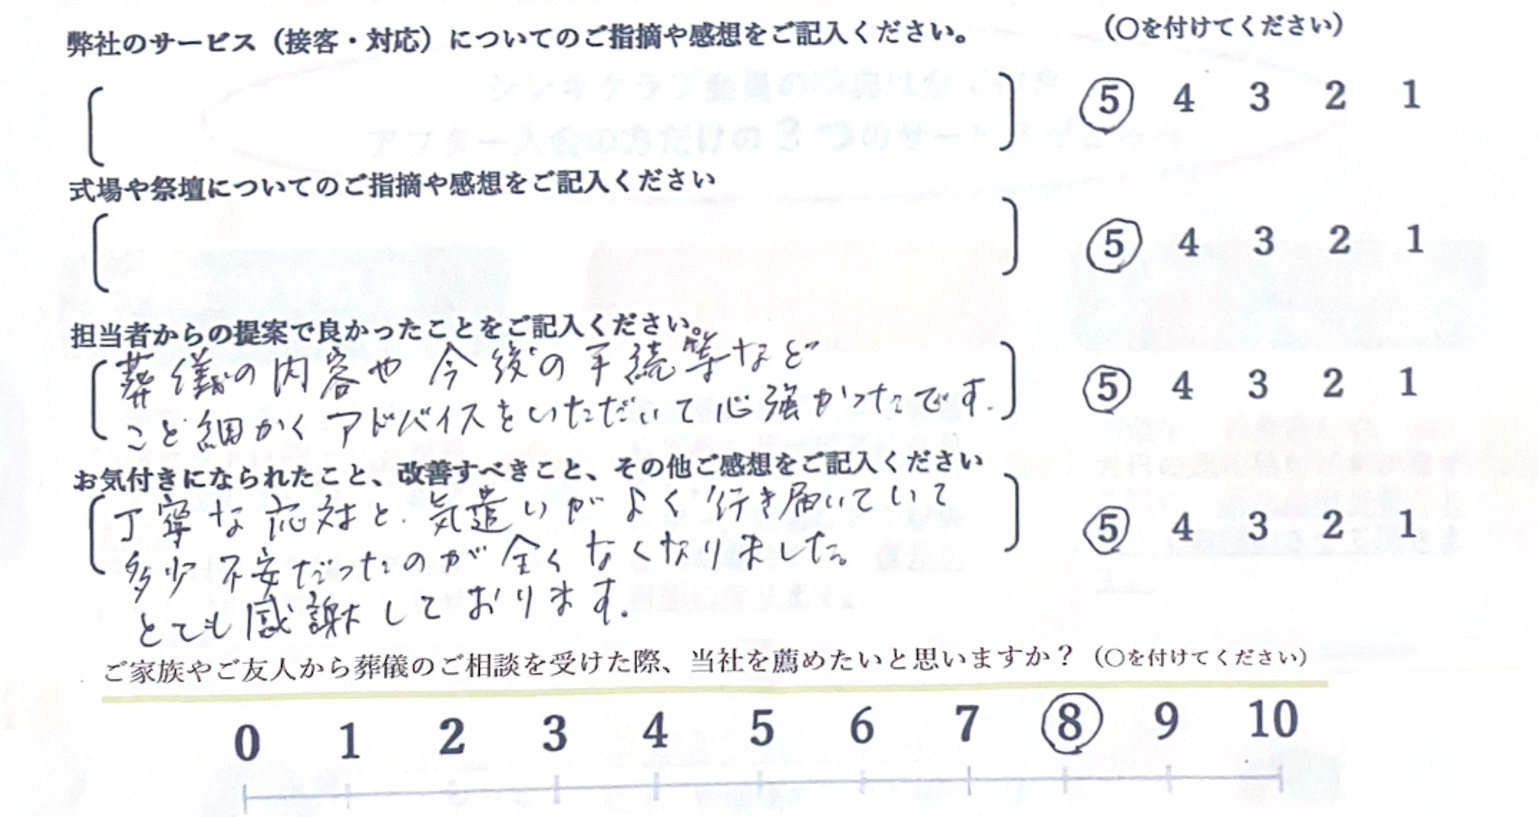 弊社のサービス（接客・対応）についてのご指摘や感想をご記入ください。 （○を付けてください）
5 4 3 2 1
式場や祭壇についてのご指摘や感想をご記入ください
5 4 3 2 1
担当者からの提案で良かったことをご記入ください。
葬儀の内容や今後の手続等など
こと細かくアドバイスをいただいて心強かったです.
5 4 3 2 1
お気付きになられたこと、改善すべきこと、その他ご感想をご記入ください
丁寧な応対と気遣いがよく行き届いていて
多少不安だったのが全くなくなりました。
とても感謝しております.
5 4 3 2 1
ご家族やご友人から葬儀のご相談を受けた際、当社を薦めたいと思いますか？（○を付けてください）
0 1 2 3 4 5 6 7 8 9 10